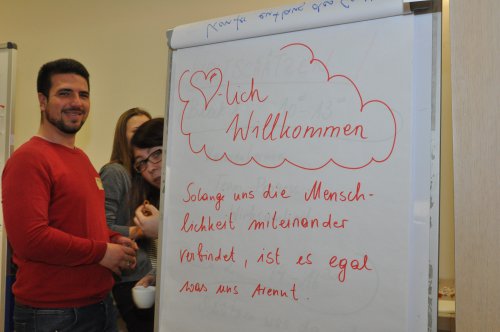 ♡-lich
Willkommen
Solange uns die Mensch-
lichkeit miteinander
verbindet, ist es egal
was uns trennt.